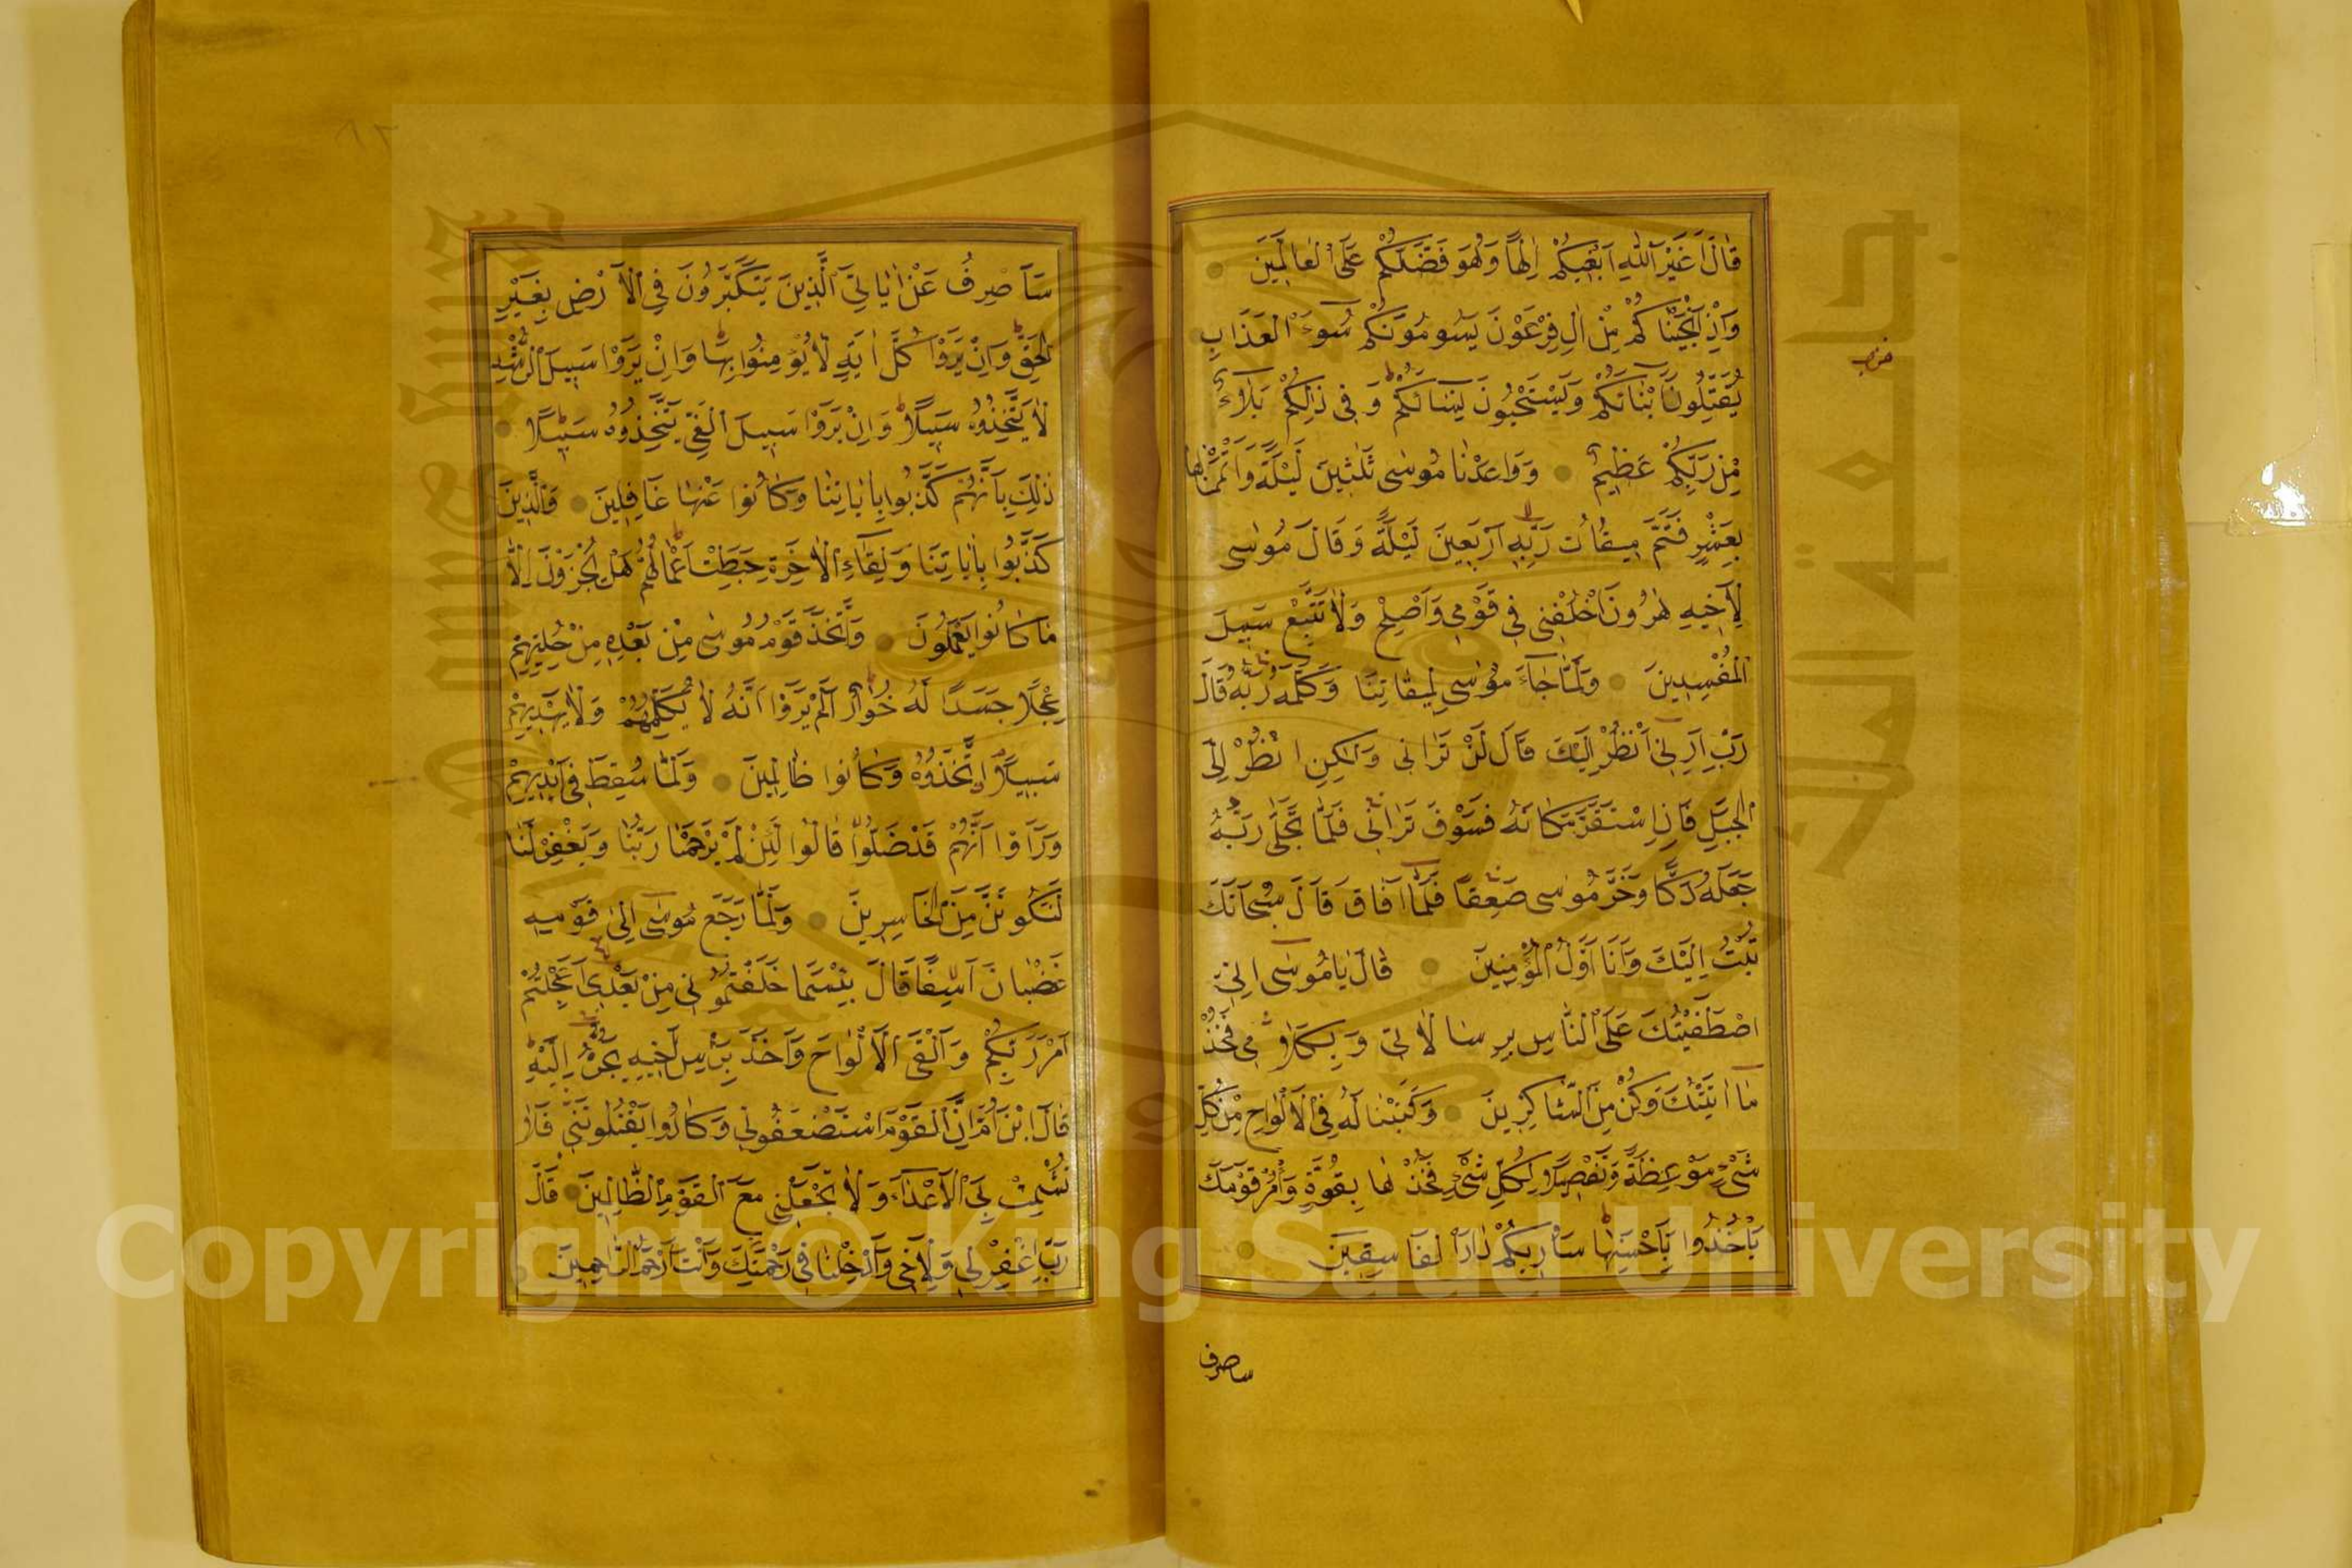 قَالَ اَغَيْرَ اللّٰهِ اَبْغِيكُمْ اِلٰهًا وَهُوَ فَضَّلَكُمْ عَلَى الْعَالَمِينَ
وَاِذْ اَنْجَيْنَاكُمْ مِنْ اٰلِ فِرْعَوْنَ يَسُومُونَكُمْ سُوءَ الْعَذَابِ
يُقَتِّلُونَ اَبْنَاءَكُمْ وَيَسْتَحْيُونَ نِسَاءَكُمْ وَفِى ذٰلِكُمْ بَلَاءٌ
مِنْ رَبِّكُمْ عَظِيمٌ وَوَاعَدْنَا مُوسٰى ثَلٰثِينَ لَيْلَةً وَاَتْمَمْنَاهَا
بِعَشْرٍ فَتَمَّ مِيقَاتُ رَبِّهِ اَرْبَعِينَ لَيْلَةً وَقَالَ مُوسٰى
لِاَخِيهِ هٰرُونَ اخْلُفْنِى فِى قَوْمِى وَاَصْلِحْ وَلَا تَتَّبِعْ سَبِيلَ
الْمُفْسِدِينَ وَلَمَّا جَاءَ مُوسٰى لِمِيقَاتِنَا وَكَلَّمَهُ رَبُّهُ قَالَ
رَبِّ اَرِنِى اَنْظُرْ اِلَيْكَ قَالَ لَنْ تَرَانِى وَلٰكِنِ انْظُرْ اِلَى
الْجَبَلِ فَاِنِ اسْتَقَرَّ مَكَانَهُ فَسَوْفَ تَرَانِى فَلَمَّا تَجَلّٰى رَبُّهُ
جَعَلَهُ دَكًّا وَخَرَّ مُوسٰى صَعِقًا فَلَمَّا اَفَاقَ قَالَ سُبْحَانَكَ
تُبْتُ اِلَيْكَ وَاَنَا اَوَّلُ الْمُؤْمِنِينَ قَالَ يَا مُوسٰى اِنِّى
اصْطَفَيْتُكَ عَلَى النَّاسِ بِرِسَالَاتِى وَبِكَلَامِى فَخُذْ
مَا اٰتَيْتُكَ وَكُنْ مِنَ الشَّاكِرِينَ وَكَتَبْنَا لَهُ فِى الْاَلْوَاحِ مِنْ كُلِّ
شَىْءٍ مَوْعِظَةً وَتَفْصِيلًا لِكُلِّ شَىْءٍ فَخُذْهَا بِقُوَّةٍ وَأْمُرْ قَوْمَكَ
يَأْخُذُوا بِاَحْسَنِهَا سَاُرِيكُمْ دَارَ الْفَاسِقِينَ
حزب
ساصرف
سَاَصْرِفُ عَنْ اٰيَاتِىَ الَّذِينَ يَتَكَبَّرُونَ فِى الْاَرْضِ بِغَيْرِ
الْحَقِّ وَاِنْ يَرَوْا كُلَّ اٰيَةٍ لَا يُؤْمِنُوا بِهَا وَاِنْ يَرَوْا سَبِيلَ الرُّشْدِ
لَا يَتَّخِذُوهُ سَبِيلًا وَاِنْ يَرَوْا سَبِيلَ الْغَىِّ يَتَّخِذُوهُ سَبِيلًا
ذٰلِكَ بِاَنَّهُمْ كَذَّبُوا بِاٰيَاتِنَا وَكَانُوا عَنْهَا غَافِلِينَ وَالَّذِينَ
كَذَّبُوا بِاٰيَاتِنَا وَلِقَاءِ الْاٰخِرَةِ حَبِطَتْ اَعْمَالُهُمْ هَلْ يُجْزَوْنَ اِلَّا
مَا كَانُوا يَعْمَلُونَ وَاتَّخَذَ قَوْمُ مُوسٰى مِنْ بَعْدِهِ مِنْ حُلِيِّهِمْ
عِجْلًا جَسَدًا لَهُ خُوَارٌ اَلَمْ يَرَوْا اَنَّهُ لَا يُكَلِّمُهُمْ وَلَا يَهْدِيهِمْ
سَبِيلًا اِتَّخَذُوهُ وَكَانُوا ظَالِمِينَ وَلَمَّا سُقِطَ فِى اَيْدِيهِمْ
وَرَاَوْا اَنَّهُمْ قَدْ ضَلُّوا قَالُوا لَئِنْ لَمْ يَرْحَمْنَا رَبُّنَا وَيَغْفِرْ لَنَا
لَنَكُونَنَّ مِنَ الْخَاسِرِينَ وَلَمَّا رَجَعَ مُوسٰى اِلٰى قَوْمِهِ
غَضْبَانَ اَسِفًا قَالَ بِئْسَمَا خَلَفْتُمُونِى مِنْ بَعْدِى اَعَجِلْتُمْ
اَمْرَ رَبِّكُمْ وَاَلْقَى الْاَلْوَاحَ وَاَخَذَ بِرَأْسِ اَخِيهِ يَجُرُّهُ اِلَيْهِ
قَالَ ابْنَ اُمَّ اِنَّ الْقَوْمَ اسْتَضْعَفُونِى وَكَادُوا يَقْتُلُونَنِى فَلَا
تُشْمِتْ بِىَ الْاَعْدَاءَ وَلَا تَجْعَلْنِى مَعَ الْقَوْمِ الظَّالِمِينَ قَالَ
رَبِّ اغْفِرْ لِى وَلِاَخِى وَاَدْخِلْنَا فِى رَحْمَتِكَ وَاَنْتَ اَرْحَمُ الرَّاحِمِينَ
Copyright © King Saud University